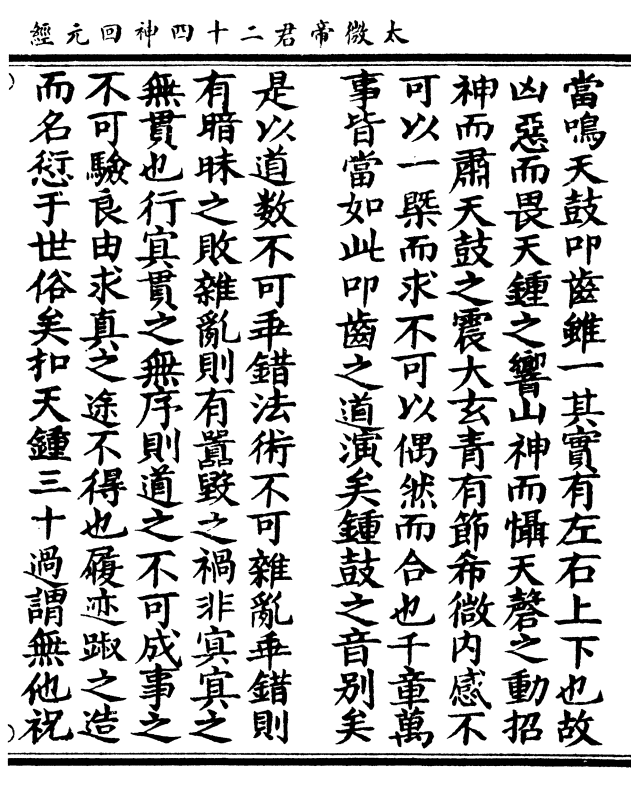 太微帝君二十四神回元經
當鳴天鼓叩齒雖一其實有左右上下也故
凶惡而畏天鍾之響山神而懾天磬之動招
神而肅天鼓之震大玄青有節希微内感不
可以一槩而求不可以偶然而合也千童萬
事皆當如此叩齒之道演矣鍾鼓之音别矣
是以道数不可乖錯法術不可雜亂乖錯則
有暗昧之敗雜亂則有嚚毀之禍非寅寅之
無貫也行寅貫之無序則道之不可成事之
不可驗良由求真之途不得也履迹踧之造
而名愆于世俗矣扣天鍾三十過謂無他祝